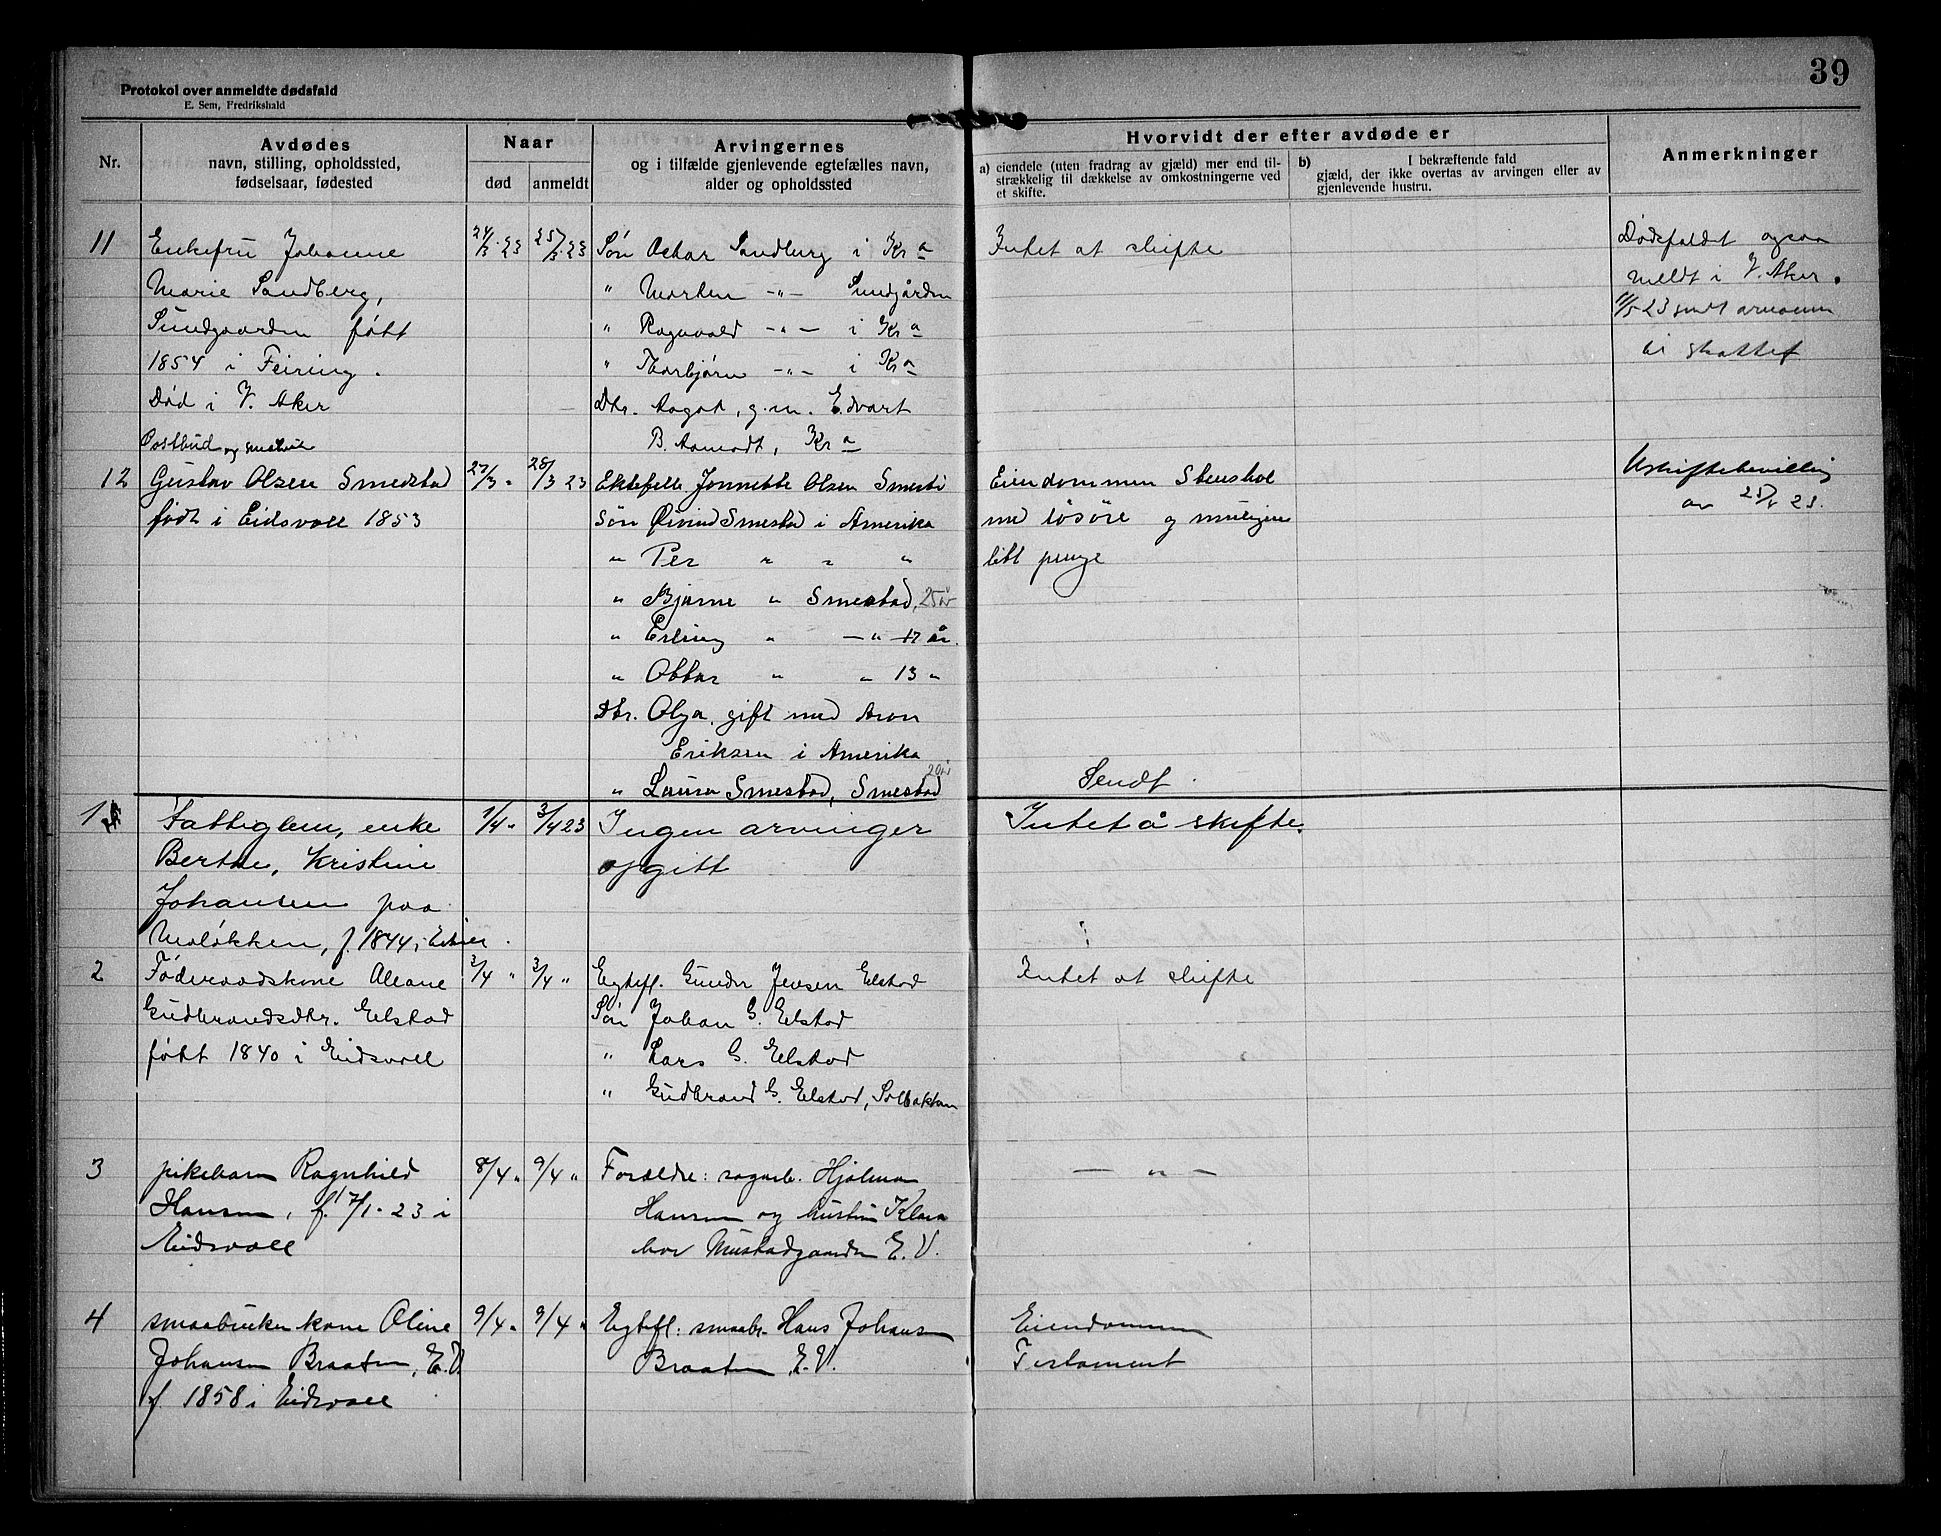 39
Protokol over anmeldte dødsfald
E. Sem, Fredrikshald
Nr.
Avdødes
navn, stilling, opholdssted,
fødselsaar, fødested
Naar
død
anmeldt
Arvingernes
og i tilfælde gjenlevende egtefælles navn,
alder og opholdssted
Hvorvidt der efter avdøde er
a) eiendele (uten fradrag av gjæld) mer end til-
strækkelig til dækkelse av omkostningerne ved
et skifte.
b) I bekræftende fald
gjæld, der ikke overtas av arvingen eller av
gjenlevende hustru.
Anmerkninger
11
Enkefru Johanne
Marie Sandberg,
Sundgaarden født
1854 i Feiring.
Død i V. Aker
24/3 23
25/3 23
Søn Oskar Sandberg i Kra
" Morten -"- Sundgården
" Ragnvald -"- i Kra
" Thorbjørn -"- i Kra
Dtr. Aagot, g.m. Edvart
B. Aamodt, Kra
Intet at skifte
Dødsfaldet ogsaa
meldt i V. Aker.
11/5 23 sendt
til skattef
12
Postbud og
Gustav Olsen Smedstad
født i Eidsvoll 1853
27/3 "
28/3 23
Ektefelle Jonnette Olsen Smest.
Søn Øivind Smestad i Amerika
" Per " " "
" Bjarne " Smestad, 25 år
" Erling " -"- 17 år.
" Ottar " " 13 "
Dtr. Olga, gift med Aron
Eriksen i Amerika
" Laura Smestad, Smestad 20 år
Eiendommen Stenshol
med løsøre og muligens
litt penge
Sendt.
Uskiftebevilling
av 25/4 23.
1
Fattiglem, enke
Berthe, Kristine
Johansen paa
Moløkken, f. 1844,
1/4 "
3/4 23
Ingen arvinger
opgitt
Intet å skifte.
2
Føderaadskone Aleane
Gudbrandsdtr. Elstad
født 1840 i Eidsvoll
3/4 "
3/4 "
Egtefl. Gunder Jensen Elstad
Søn Johan G. Elstad
" Lars G. Elstad
" Gudbrand G. Elstad, Solbakken
Intet at skifte
3
pikebarn Ragnhild
Hansen, f. 17/1-23 i
Eidsvoll
8/4 "
9/4 "
Forældre: sagarb. Hjalmar
Hansen og hustru Klara
bor Mustadgaarden E.V.
— " —
4
smaabruker kone Oline
Johansen Braaten, E.V.
f. 1858 i Eidsvoll
9/4 "
9/4 "
Egtefl: smaabr. Hans Johansen
Braaten E.V.
Eiendommen
Testament